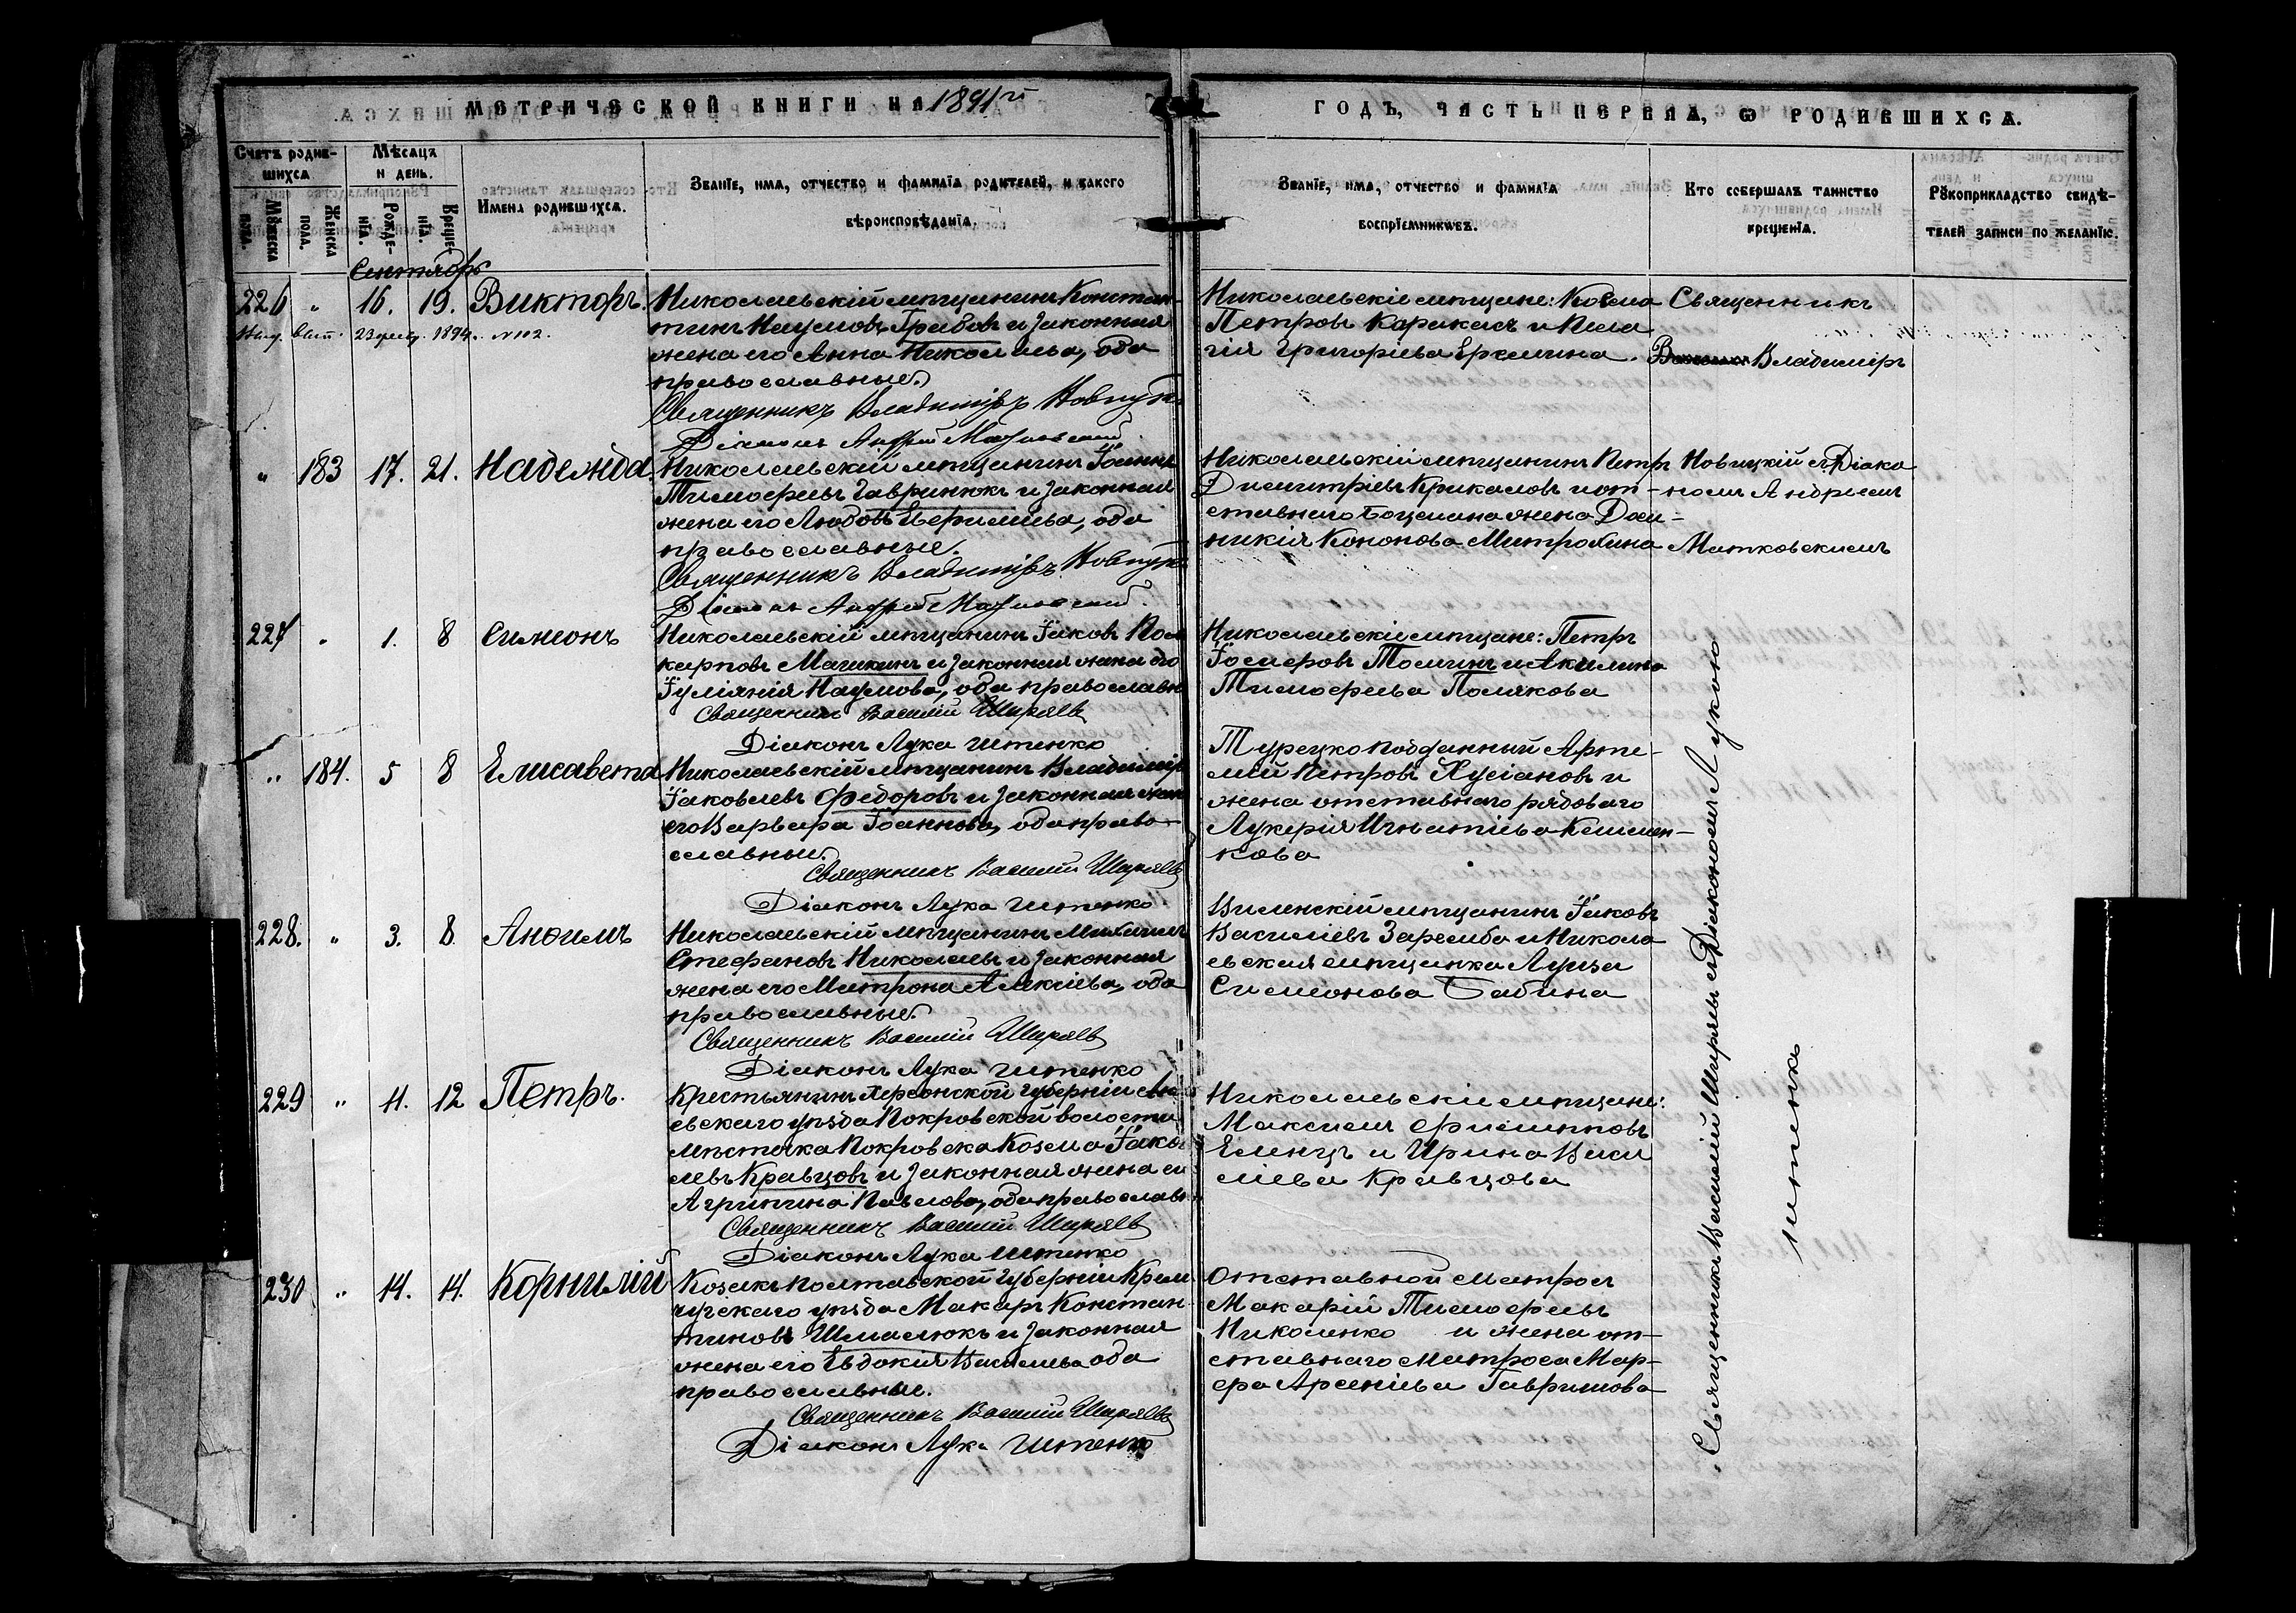 МЕТРИЧЕСКОЙ КНИГИ НА 1891й
ГОДЪ, ЧАСТЬ ПЕРВАЯ, Ѡ РОДИВШИХСѦ.
Счетъ родив-
шихсѧ
Мꙋжеска
пола.
Женска
пола.
Мѣсѧцъ
и день.
Рожде-
нїѧ.
Креще-
нїѧ.
Имена родившихсѧ.
Званїе, имѧ, отчество и фамилїѧ родителей, и какого
вѣроисповѣданїѧ.
Званїе, имѧ, отчество и фамилїѧ
воспрїемниковъ.
Кто совершалъ таинство
крещенїѧ.
Рꙋкоприкладство свидѣ-
телей записи по желанїю.
Сентябрь
226 " 16. 19. Викторъ.
Выд. 23 1894. №102.
Николаевскій мѣщанинъ Констан-
тинъ Наумовъ Грабовъ и законная
жена его Анна Николаева, оба
православные.
Священникъ Владиміръ Новицкій
Діаконъ Андрей Матковскій
Николаевскіе мѣщане: Косма
Петровъ Каракашъ и Пела
гія Григоріева Еремина.
Священникъ
Владиміръ
" 183 17. 21. Надежда.
Николаевскій мѣщанинъ Іоаннъ
Тимофеевъ Гавринюкъ и законная
жена его Любовь Ефиміева, оба
православные.
Священникъ Владиміръ Новицкій
Діаконъ Андрей Матковскій.
Николаевскій мѣщанинъ Петръ
Димитріевъ Крикаловъ и от-
ставнаго Боцмана жена Дом-
никія Кононова Митрохина
Новицкій съ Діако
номъ Андреемъ
Матковскимъ
227 " 1. 8 Симеонъ
Николаевскій мѣщанинъ Іаковъ Поли
карповъ Мачихинъ и законная жена его
Іуліянія Наумова, оба православн
Священникъ Василій Ширяевъ
Діаконъ Лука Штенко
Николаевскіе мѣщане: Петръ
Іосифовъ Томинъ и Акилина
Тимофеева Полякова
" 184. 5 8 Елисавета
Николаевскій мѣщанинъ Владиміръ
Іаковлевъ Федоровъ и законная жена
его Варвара Іоаннова, оба право-
славные.
Священникъ Василій Ширяевъ
Діаконъ Лука Штенко
Турецко подданный Арте-
мій Петровъ Хусіановъ и
жена отставнаго рядоваго
Лукерія Игнатіева
кова
228. " 3. 8 Анѳимъ
Николаевскій мѣщанинъ Михаилъ
Стефановъ Николаевъ и законная
жена его Матрона Алексіева, оба
православные.
Священникъ Василій Ширяевъ
Діаконъ Лука Штенко
Виленскій мѣщанинъ Іаковъ
Василіевъ Заремба и Никола
евская мѣщанка Луиза
Симеонова Бабина
229 " 11. 12 Петръ.
Крестьянинъ Херсонской губерніи Ана
евскаго уѣзда Покровской волости
мѣстечка Покровска Козма Іаков
левъ Кравцовъ и законная жена ег
Агрипина Павлова, оба православн
Священникъ Василій Ширяевъ
Діаконъ Лука Штенко
Николаевскіе мѣщане:
Максимъ Филипповъ
Еленцъ и Ирина Васи
ліева Кравцова
230 " 14. 14. Корнилій
Козакъ Полтавской губерніи Кремен
чугскаго уѣзда Макаръ Констан-
тиновъ Шмалюкъ и законная
жена его Евдокія Василіева оба
православные.
Священникъ Василій Ширяевъ
Діаконъ Лука Штенко
Отставной Матросъ
Макарій Тимофеевъ
Николенко и жена от-
ставнаго Матроса Мар-
фа Арсеніева Гавришова
Священникъ Василій Ширяевъ съ Діакономъ Лукою
Штенко